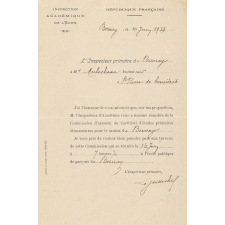 INSPECTION
ACADÉMIQUE
DE L'EURE
RÉPUBLIQUE FRANÇAISE
Bernay, le 10 juin 1933
L'Inspecteur primaire de Bernay
à M
St Pierre de
J'ai l'honneur de vous informer que, sur ma proposition,
M. l'Inspecteur d'Académie vous a nommé membre de la
Commission d'examen du certificat d'études primaires
élémentaires pour le canton de Bernay
Je vous prie de vouloir bien prendre part aux travaux
de cette Commission qui se réunira le 13 juin
à 7 heures ½ à l'école publique
de garçons de Bernay
L'Inspecteur primaire,